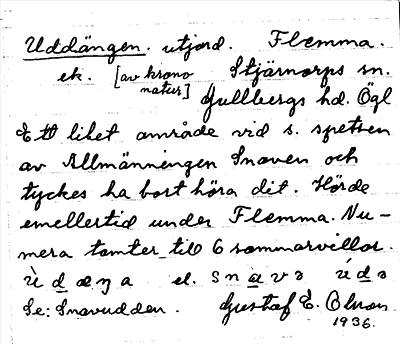 Uddängen. utjord. Flemma.
ek. [av krono natur] Stjärnorps sn.
Gullbergs hd. Ögl
Ett litet område vid s. spetsen
av Allmänningen Snaven och
tyckes ha bort höra dit. Hörde
emellertid under Flemma. Nu-
mera tomter till 6 sommarvillor.
ùdæŋa el. snavə údə
Se: Snavudden. Gustaf E. Olson
1936.